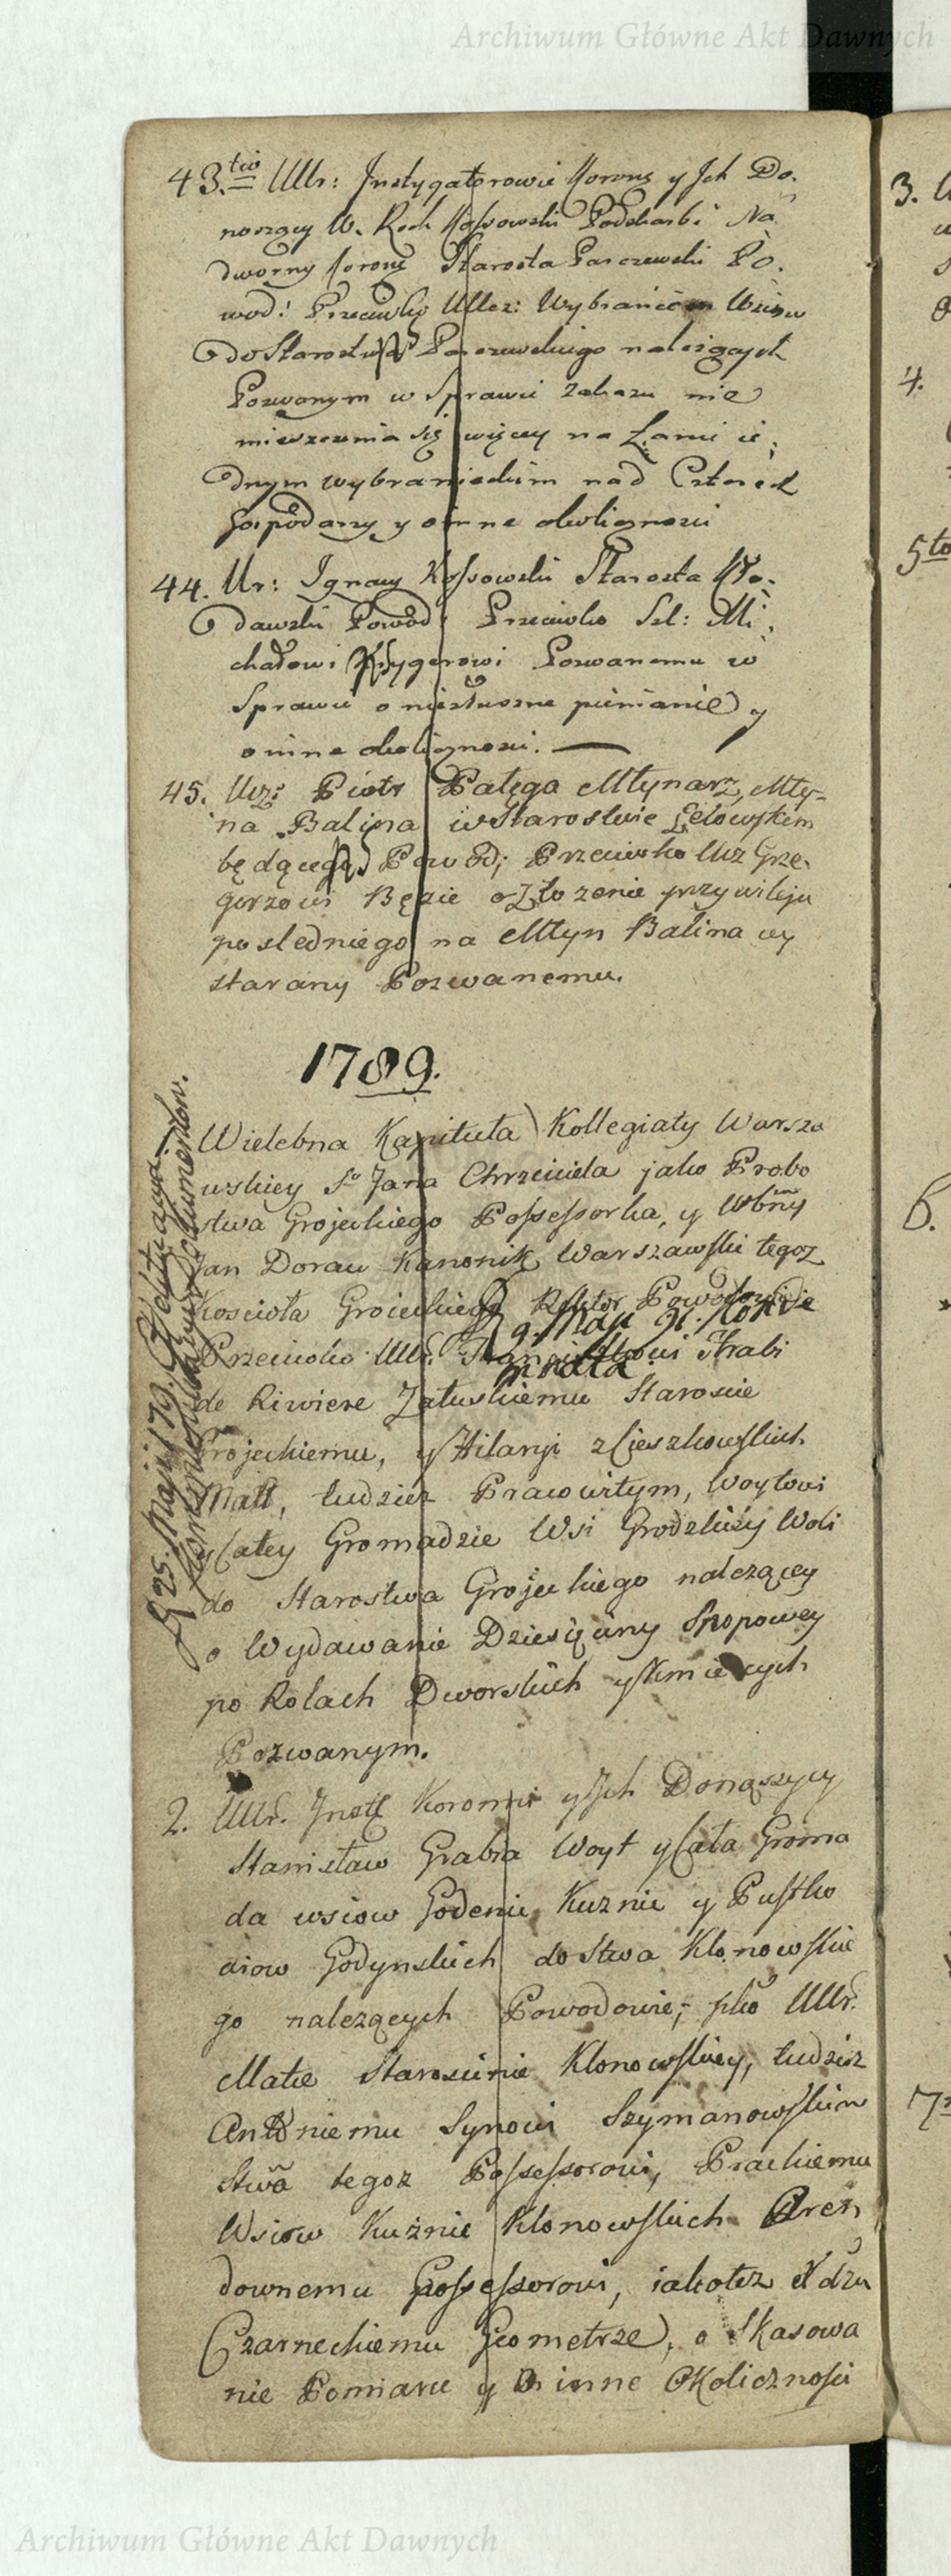 Archiwum Główne Akt Dawnych
43.tio UUr: Instygatorowie Korony y Ich Do-
noszący W. Roch Kossowski Podskarbi Na
dworny Korony Starosta Parczewski Po-
wod: Przeciwko UUcz: Wybrańcom Wsiow
do Starostwa Parczewskiego należących
Pozwanym w Sprawie zakazu nie
mieszczenia się więcey na Łanie ie-
dnym wybranieckim nad Czterech
Gospodarzy y o inne okoliczności
44. Ur: Ignacy Kossowski Starosta Kło-
dawski Powod: Przeciwko Szl: Mi-
chałowi Krygerowi Pozwanemu w
Sprawie o niesłuszne pienianie y
o inne okoliczności.
45. Ucz: Piotr Pałęga Młynarz, Mły-
na Balina w Starostwie Lelowskim
będącego, Powod; Przeciwko Ucz Grze-
gorzowi Bęzie o Złożenie przywileju
posledniego na Młyn Balina wy
starany Pozwanemu.
1789.
1. Wielebna Kapituła Kollegiaty Warsza
wskiey S° Jana Chrzciciela jako Probo
stwa Grojeckiego Possessorka, y Wbny
Jan Dorau Kanonik Warszawski tegoz
Koscioła Groieckiego Rektor Powodowie
Przeciwko UUr. Hrabi
de Riwiere Załuskiemu Staroscie
Grojeckiemu, y Hilaryi z Cieszkowskich
Małż, tudziesz Pracowitym, Woytowi
y Całey Gromadzie Wsi Grodzkiey Woli
do Starostwa Grojeckiego nalezącey
o Wydawanie Dziesięciny Snopowey
po Rolach Dworskich y Kmiecych
Pozwanym.
2. UUr. Instt Koronni y Ich Donąszycy
Stanisław Grabia Woyt y Cała Groma
da wsiow Godenie, Kuznie y Pustko
wiow Godynskich do Stwa Klonowskie
go nalezących Powodowie; pko UUr.
Matce Starościnie Klonowskiey, tudzisz
Antoniemu Synowi Szymanowskim
Stwa tegoz Possessorowi, Prackiemu
Wsiow Kuźnie Klonowskich Aren
downemu Possessorowi, iakotez
Czarneckiemu Geometrze, o Skasowa
nie Pomiaru y o inne Okolicznosci
3.
4.
5to
6.
Archiwum Główne Akt Dawnych